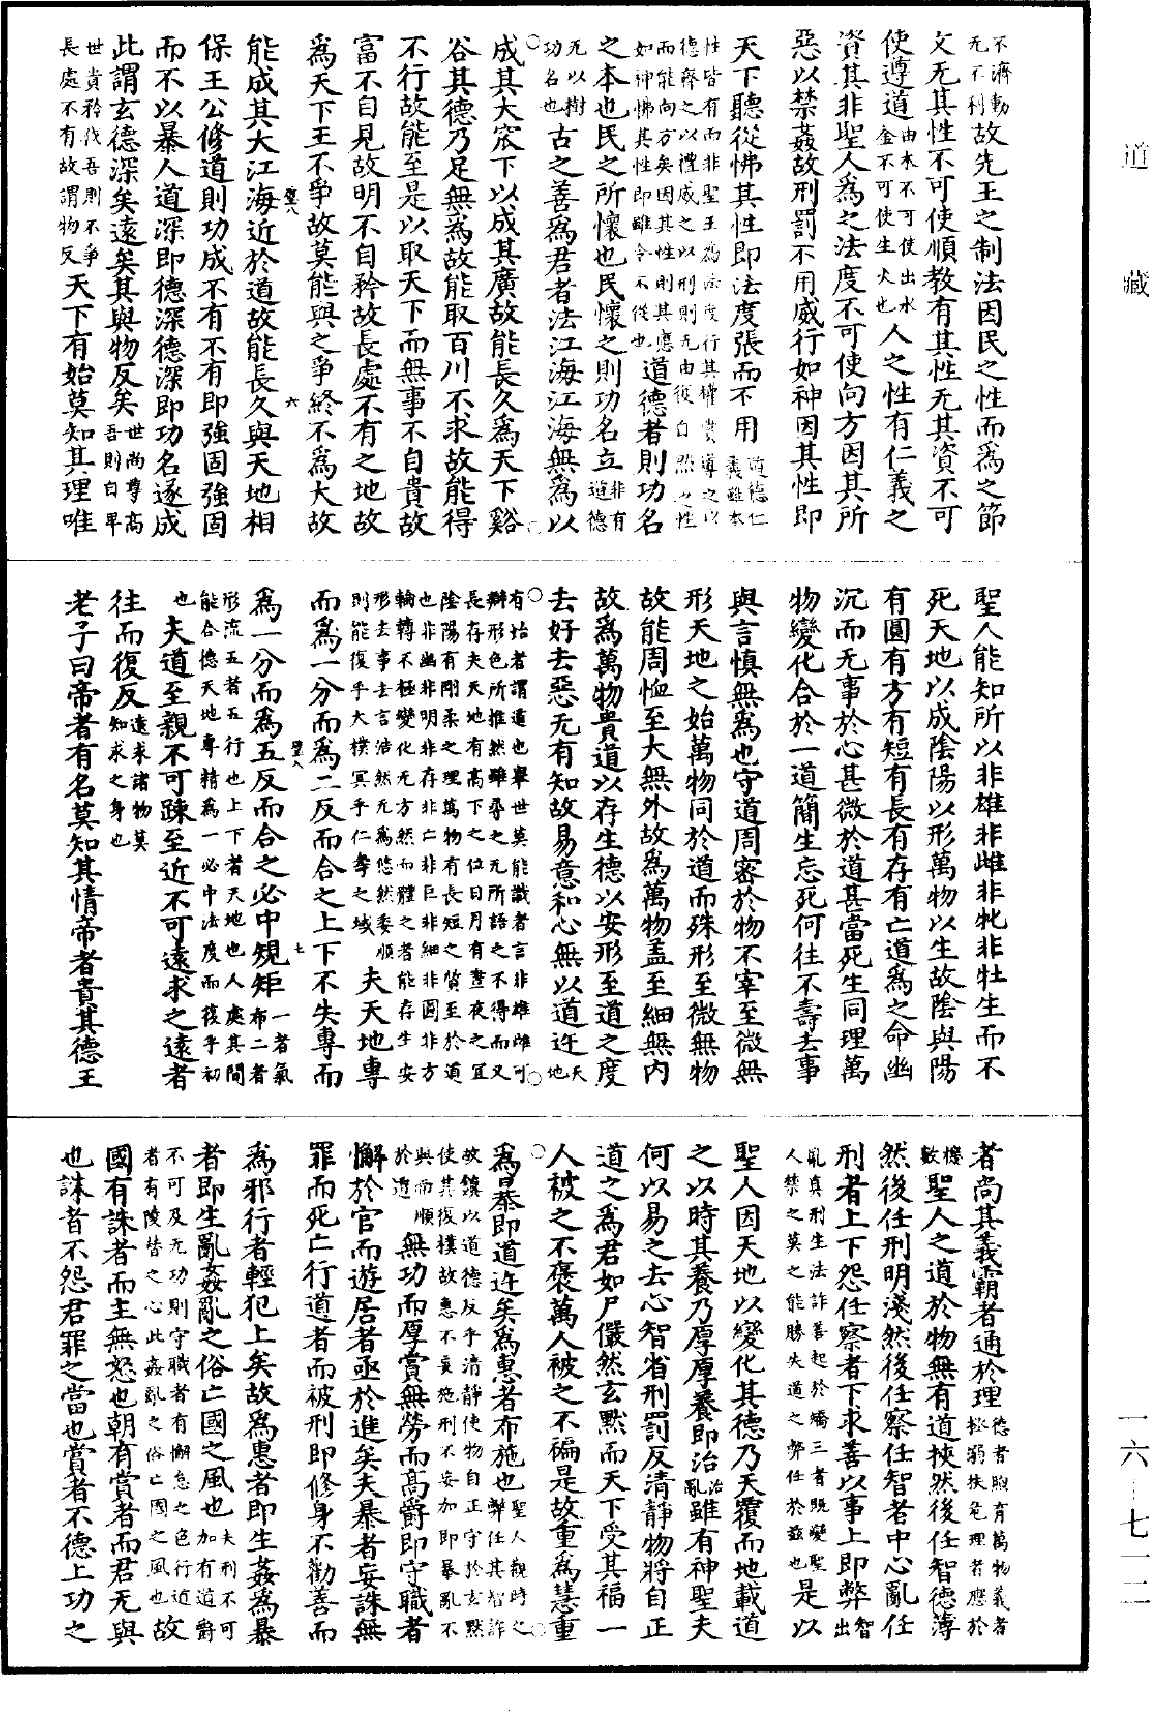 道藏
不濟動
无不利
故先王之制法因民之性而為之節
文无其性不可使順教有其性无其資不可
使遵道
由木不可使出水
金不可使生火也
人之性有仁義之
資其非聖人為之法度不可使向方因其所
惡以禁姦故刑罰不用威行如神因其性即
天下聽從怫其性即法度張而不用
道德仁
義雖本
性皆有而非聖王為法度行其權賞導之以
德齊之以禮威之以刑則无由從自然之性
而能向方矣因其性則其應
如神怫其性即雖令不從也
道德者則功名
之本也民之所懷也民懷之則功名立
非有
道德
无以樹
功名也
古之善為君者法江海江海無為以
成其大窊下以成其廣故能長久為天下谿
谷其德乃足無為故能取百川不求故能得
不行故能至是以取天下而無事不自貴故
富不自見故明不自矜故長處不有之地故
為天下王不爭故莫能與之爭終不為大故
聖八 六
能成其大江海近於道故能長久與天地相
保王公修道則功成不有不有即強固強固
而不以暴人道深即德深德深即功名遂成
此謂玄德深矣遠矣其與物反矣
世尚尊高
吾則自卑
世貴矜伐吾則不爭
長處不有故謂物反
天下有始莫知其理唯
聖人能知所以非雄非雌非牝非牡生而不
死天地以成陰陽以形萬物以生故陰與陽
有圓有方有短有長有存有亡道為之命幽
沉而无事於心甚微於道甚當死生同理萬
物變化合於一道簡生忘死何往不壽去事
與言慎無為也守道周密於物不宰至微無
形天地之始萬物同於道而殊形至微無物
故能周恤至大無外故為萬物蓋至細無內
故為萬物貴道以存生德以安形至道之度
去好去惡无有知故易意和心無以道迕
天
地
有始者謂道也舉世莫能識者言非雄雌可
辯形色所推然雖尋之无所語之不得而又
長存夫天地有高下之位日月有晝夜之宜
陰陽有剛柔之理萬物有長短之質至於道
也非幽非明非存非亡非巨非細非圓非方
輪轉不極變化无方然而體之者能存生安
形去事去言浩然无為悠然委順
則能復乎大樸冥乎仁壽之域
夫天地專
而為一分而為二反而合之上下不失專而
聖八 七
為一分而為五反而合之必中規矩
一者氣
布二者
形流五者五行也上下者天地也人處其間
能合德天地專精為一必中法度而復乎初
也
夫道至親不可踈至近不可遠求之遠者
往而復反
遠求諸物莫
知求之身也
老子曰帝者有名莫知其情帝者貴其德王
者尚其義霸者通於理
德者煦育萬物義者
拯弱扶危理者應於
機
數
聖人之道於物無有道挾然後任智德薄
然後任刑明淺然後任察任智者中心亂任
刑者上下怨任察者下求善以事上即弊
智
出
亂真刑生法詐善起於矯三者既變聖
人禁之莫之能勝失道之弊任於茲也
是以
聖人因天地以變化其德乃天覆而地載道
之以時其養乃厚厚養即治
治
亂
雖有神聖夫
何以易之去心智省刑罰反清靜物將自正
道之為君如尸儼然玄默而天下受其福一
人被之不褒萬人被之不褊是故重為惠重
為暴即道迕矣為惠者布施也
聖人觀時之
弊任其智詐
故鎮以道德反乎清靜使物自正守於玄默
使其復樸故惠不妄施刑不妄加即暴亂不
與而順
於道
無功而厚賞無勞而高爵即守職者
懈於官而遊居者亟於進矣夫暴者妄誅無
罪而死亡行道者而被刑即修身不勸善而
為邪行者輕犯上矣故為惠者即生姦為暴
者即生亂姦亂之俗亡國之風也
夫刑不可
加有道爵
不可及无功則守職者有懈怠之色行道
者有陵替之心此姦亂之俗亡國之風也
故
國有誅者而主無怒也朝有賞者而君无與
也誅者不怨君罪之當也賞者不德上功之
一六—七一二